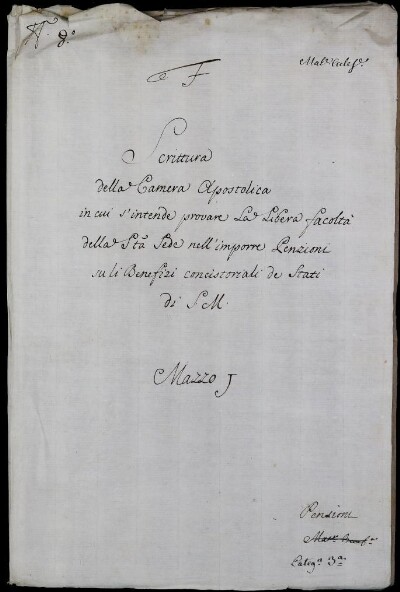 F
Scrittura
della Camera Apostolica
in cui s'intende provare La Libera facoltà
della Sta Sede nell'imporre Penzioni
su li Benefizi concistoriali de Stati
di S M.
Mazzo J
Pensioni
Categª 3ª